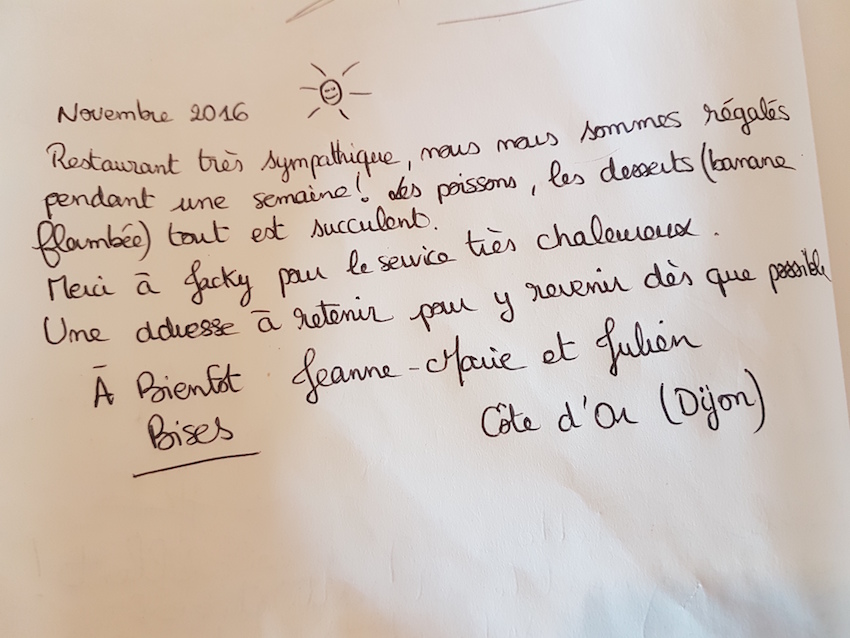 Novembre 2016
Restaurant très sympathique, nous nous sommes régalés
pendant une semaine! Les poissons, les desserts (banane
flambée) tout est succulent.
Merci à Jacky pour le service très chaleureux.
Une adresse à retenir pour y revenir dès que possible
À Bientôt Jeanne-Marie et Julien
Bises Côte d'Or (Dijon)